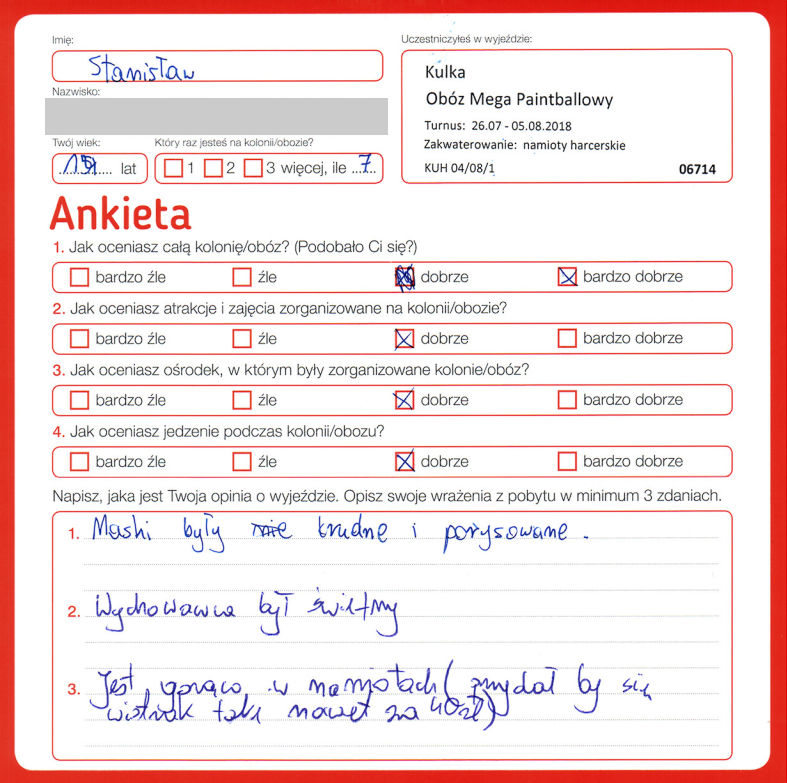 Imię:
Stanisław
Nazwisko:
Uczestniczyłeś w wyjeździe:
Kulka
Obóz Mega Paintballowy
Turnus: 26.07 - 05.08.2018
Zakwaterowanie: namioty harcerskie
KUH 04/08/1 06714
Twój wiek:
lat
Który raz jesteś na kolonii/obozie?
1 2 3 więcej, ile ...7..
Ankieta
1. Jak oceniasz całą kolonię/obóz? (Podobało Ci się?)
bardzo źle źle dobrze bardzo dobrze
2. Jak oceniasz atrakcje i zajęcia zorganizowane na kolonii/obozie?
bardzo źle źle dobrze bardzo dobrze
3. Jak oceniasz ośrodek, w którym były zorganizowane kolonie/obóz?
bardzo źle źle dobrze bardzo dobrze
4. Jak oceniasz jedzenie podczas kolonii/obozu?
bardzo źle źle dobrze bardzo dobrze
Napisz, jaka jest Twoja opinia o wyjeździe. Opisz swoje wrażenia z pobytu w minimum 3 zdaniach.
1. Maski były nie brudne i porysowane.
2. Wychowawca był świetny
3. Jest gorąco w namiotach (przydał by się
wiatrak taki nawet za 40zł)